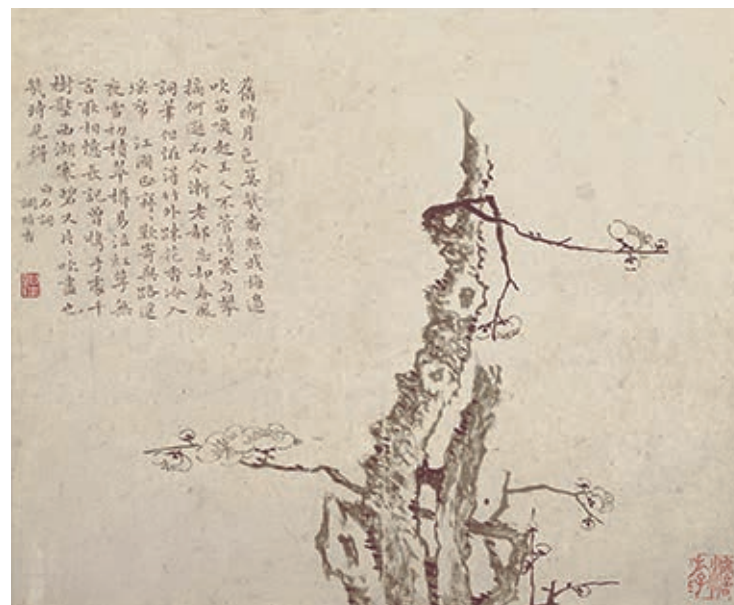 舊時月色算幾番照我梅邊
吹笛喚起玉人不管清寒与攀
摘何遜而今漸老都忘却春風
詞筆但怪得竹外疎花香冷入
瑤席 江國正寂歎寄與路遥
夜雪初積翠樽易泣紅萼無
言耿相憶長記曾携手處千
樹壓西湖寒碧又片〻吹盡也
幾時見得
白石詞
調暗香